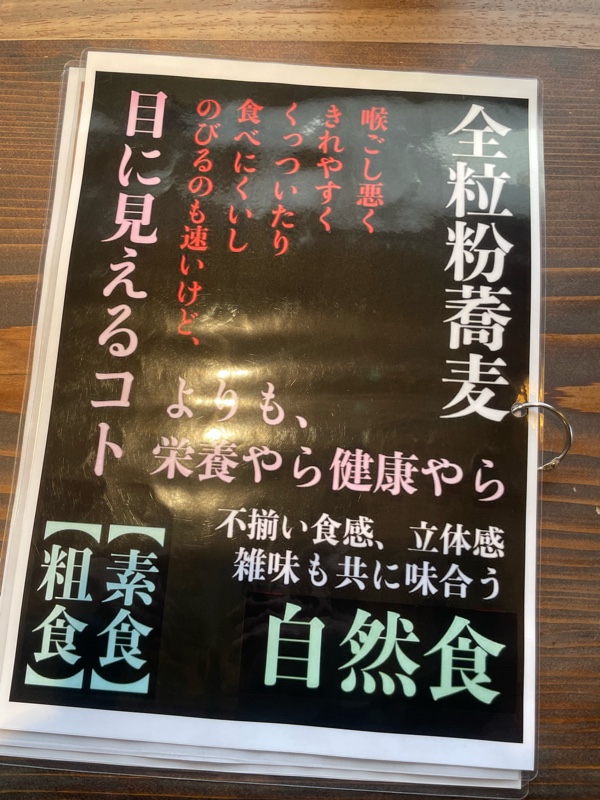 全粒粉蕎麦
喉ごし悪く
きれやすく
くっついたり
食べにくいし
のびるのも速いけど、
目に見えるコト
よりも、
栄養やら健康やら
不揃い食感、立体感
雑味も共に味合う
自然食
【素食】
【粗食】